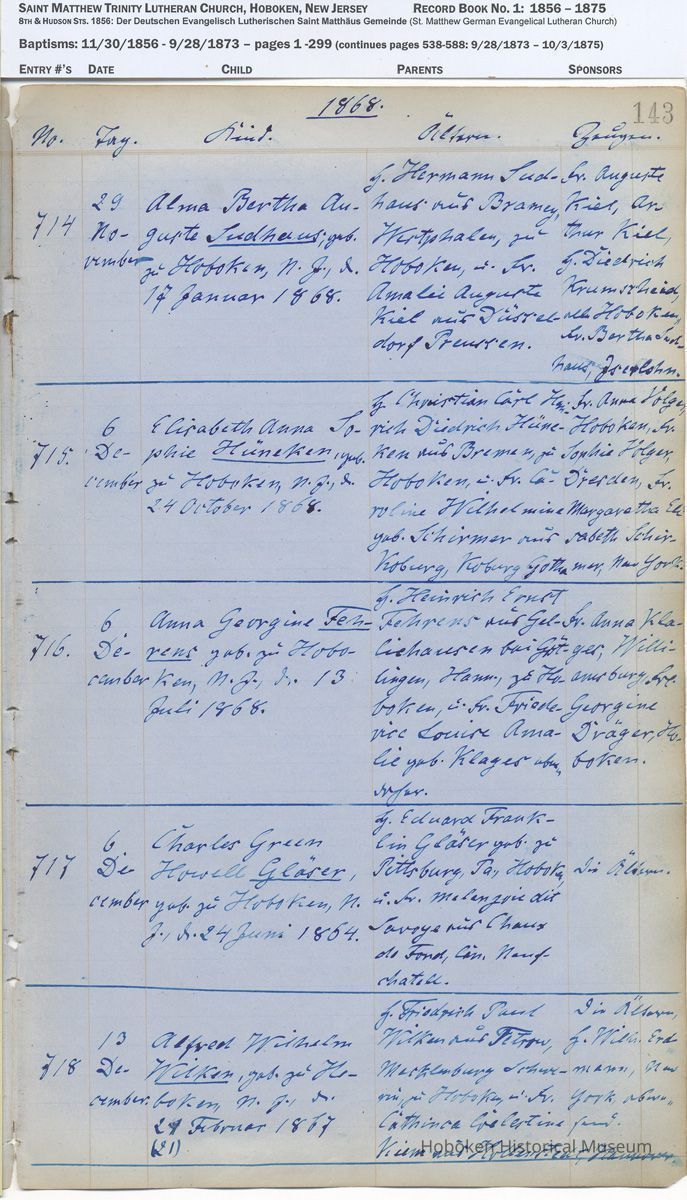 SAINT MATTHEW TRINITY LUTHERAN CHURCH, HOBOKEN, NEW JERSEY RECORD BOOK NO. 1: 1856 – 1875
8TH & HUDSON STS. 1856: Der Deutschen Evangelisch Lutherischen Saint Matthäus Gemeinde (St. Matthew German Evangelical Lutheran Church)
Baptisms: 11/30/1856 - 9/28/1873 – pages 1 -299 (continues pages 538-588: 9/28/1873 – 10/3/1875)
ENTRY #'S DATE CHILD PARENTS SPONSORS
1868.
143
No. Tag. Kind. Ältern. Zeugen.
714
29
No-
vember
Alma Bertha Au-
guste Sudhaus, geb.
zu Hoboken, N. J., d.
17 Januar 1868.
H. Hermann Sud-
haus aus Bramey,
Westphalen, zu
Hoboken, u. Fr.
Amalei Auguste
Kiel aus Düssel-
dorf Preussen.
Fr. Auguste
Kiel, Ar-
thur Kiel,
H. Diedrich
Krumscheid,
alle Hoboken,
Fr. Bertha Sud-
haus, Iserlohn.
715.
6
De-
cember
Elisabeth Anna So-
phie Hüneken, geb.
zu Hoboken, N. J., d.
24 October 1868.
H. Christian Carl Hein-
rich Diedrich Hüne-
ken aus Bremen, zu
Hoboken, u. Fr. Ca-
roline Wilhelmine
geb. Schirmer aus
Koburg, Koburg Gotha
Fr. Anna Holger,
Hoboken, Fr.
Sophie Holger,
Dresden, Fr.
Margaretha Eli-
sabeth Schir-
mer, New York.
716.
6
De-
cember
Anna Georgine Feh-
rens geb. zu Hobo-
ken, N. J., d. 13
Juli 1868.
H. Heinrich Ernst
Fehrens aus Gel-
liehausen bei Göt-
tingen, Hann., zu Ho-
boken, u. Fr. Friede-
rice Louise Ama-
lie geb. Klages eben
daher.
Fr. Anna Kla-
ges, Willi-
amsburg, Fr.
Georgine
Dräger, Ho-
boken.
717
6
De-
cember
Charles Green
Howell Gläser,
geb. zu Hoboken, N.
J., d. 24 Juni 1864.
H. Eduard Frank-
lin Gläser geb. zu
Pittsburg, Pa, Hoboken,
u. Fr.
Savoye aus Chaux
de Fond, Can. Neuf-
chatell.
Die Ältern.
718
13
De-
cember.
Alfred Wilhelm
Wilken, geb. zu Ho-
boken, N. J., d.
21 Februar 1867
(21)
H. Friedrich Paul
Wilken aus Teterow,
Mecklenburg Schwe-
rin, zu Hoboken, u. Fr.
Cathinca Coelestine
Die Ältern,
H. Wilh. Erd-
mann, New
York
Hoboken Historical Museum